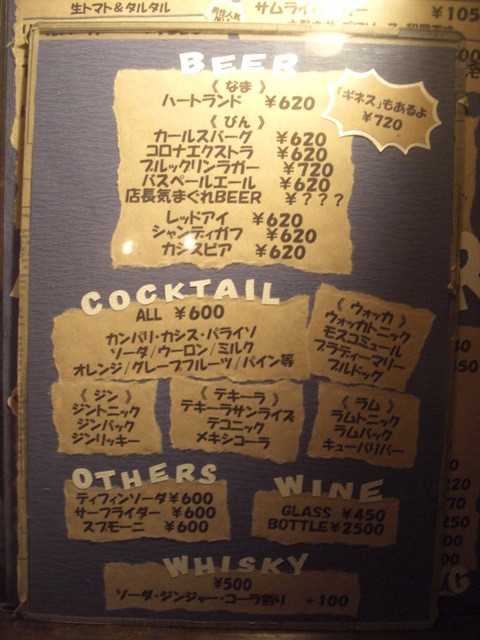 生トマト&タルタル
¥105
BEER
《なま》
ハートランド ¥620
「ギネス」もあるよ
¥720
《びん》
カールスバーグ ¥620
コロナエクストラ ¥620
ブルックリンラガー ¥720
バスペールエール ¥620
店長気まぐれBEER ¥???
レッドアイ ¥620
シャンディガフ ¥620
カシスビア ¥620
COCKTAIL
ALL ¥600
カンパリ・カシス・パライソ
ソーダ/ウーロン/ミルク
オレンジ/グレープフルーツ/パイン等
《ウォッカ》
ウォッカトニック
モスコミュール
ブラディーマリー
ブルドッグ
《ジン》
ジントニック
ジンバック
ジンリッキー
《テキーラ》
テキーラサンライズ
テコニック
メキシコーラ
《ラム》
ラムトニック
ラムバック
キューバリバー
OTHERS
ティフィンソーダ ¥600
サーフライダー ¥600
スプモーニ ¥600
WINE
GLASS ¥450
BOTTLE ¥2500
WHISKY
¥500
ソーダ・ジンジャー・コーラ割り +100